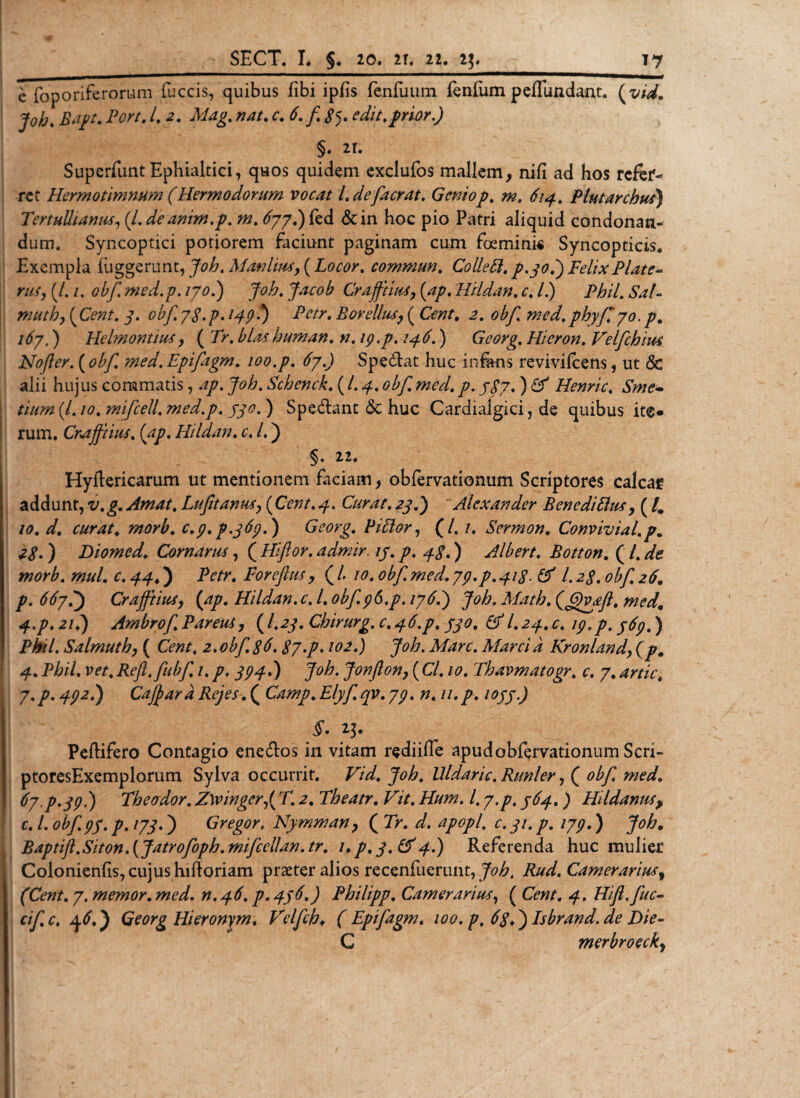 SECT. I. §. 20. 21. 22. 23. 17
è ſoporiferorum ſuccis, quibus ſibi ipſis ſenſuum ſenſum peſſundant. (vid.
Joh. Bapt. Port. l. 2. Mag. nat. c. 6. f. 85. edit. prior.)
§. 21.
Superſunt Ephialtici, quos quidem excluſos mallem, niſi ad hos refer-
ret Hermotimnum (Hermodorum vocat l. de ſacrat. Genio p. m. 614. Plutarchus)
Tertullianus, (l. de anim. p. m. 677.) ſed & in hoc pio Patri aliquid condonan-
dum. Syncoptici potiorem faciunt paginam cum fœminis Syncopticis.
Exempla ſuggerunt, Joh. Manlius, (Locor. commun. Collect. p. 30.) Felix Plate-
rus, (l. 1. obſ. med. p. 170.) Joh. Jacob Craſſtius, (ap. Hildan. c. l.) Phil. Sal-
muth, (Cent. 3. obſ. 78. p. 149.) Petr. Borellus, (Cent. 2. obſ. med. phyſ. 70. p.
167.) Helmontius, (Tr. blas human. n. 19. p. 146.) Georg. Hieron. Velſchius
Noſter. (obſ. med. Epiſagm. 100. p. 67.) Spectat huc infans reviviſcens, ut &
alii hujus commatis, ap. Joh. Schenck. (l. 4. obſ. med. p. 587.) & Henric. Sme-
tium (l. 10. miſcell. med. p. 530.) Spectant & huc Cardialgici, de quibus ite-
rum. Craſſtius. (ap. Hildan. c. l.)
§. 22.
Hyſtericarum ut mentionem faciam, obſervationum Scriptores calcar
addunt, v. g. Amat. Luſitanus, (Cent. 4. Curat. 23.) Alexander Benedictus, (l.
10. d. curat. morb. c. 9. p. 369.) Georg. Pictor, (l. 1. Sermon. Convivial. p.
28.) Diomed. Cornarus, (Hiſtor. admir. 15. p. 48.) Albert. Botton. (l. de
morb. mul. c. 44.) Petr. Foreſtus, (l. 10. obſ. med. 79. p. 418. & l. 28. obſ. 26.
p. 667.) Craſſtius, (ap. Hildan. c. l. obſ. 96. p. 176.) Joh. Math. (Qvæſt. med.
4. p. 21.) Ambroſ. Pareus, (l. 23. Chirurg. c. 46. p. 530. & l. 24. c. 19. p. 569.)
Phil. Salmuth, (Cent. 2. obſ. 86. 87. p. 102.) Joh. Marc. Marci à Kronland, (p.
4. Phil. vet. Reſt. ſubſ. 1. p. 394.) Joh. Jonſton, (Cl. 10. Thavmatogr. c. 7. artic.
7. p. 492.) Caſpar à Rejes. (Camp. Elyſ. qv. 79. n. 11. p. 1055.)
§. 23.
Peſtifero Contagio enectos in vitam rediiſſe apud obſervationum Scri-
ptores Exemplorum Sylva occurrit. Vid. Joh. Uldaric. Runler, (obſ. med.
67. p. 39.) Theodor. Zwinger, (T. 2. Theatr. Vit. Hum. l. 7. p. 564.) Hildanus,
c. l. obſ. 95. p. 173.) Gregor. Nymman, (Tr. d. apopl. c. 31. p. 179.) Joh.
Baptiſt. Siton. (Jatroſoph. miſcellan. tr. 1. p. 3. & 4.) Referenda huc mulier
Colonienſis, cujus hiſtoriam præter alios recenſuerunt, Joh. Rud. Camerarius,
(Cent. 7. memor. med. n. 46. p. 456.) Philipp. Camerarius, (Cent. 4. Hiſt. ſuc-
ciſ. c. 46.) Georg Hieronym. Velſch. (Epiſagm. 100. p. 68.) Isbrand. de Die-
C merbroeck,